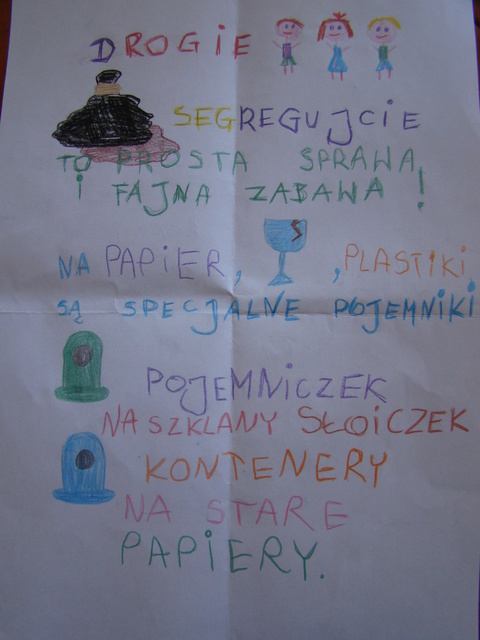 DROGIE
SEGREGUJCIE
TO PROSTA SPRAWA
i FAJNA ZABAWA!
NA PAPiER, , PLASTiKi
SĄ SPECJALNE POJEMNiKi
POJEMNiCZEK
NA SZKLANY SŁOiCZEK
KONTENERY
NA STARE
PAPiERY.